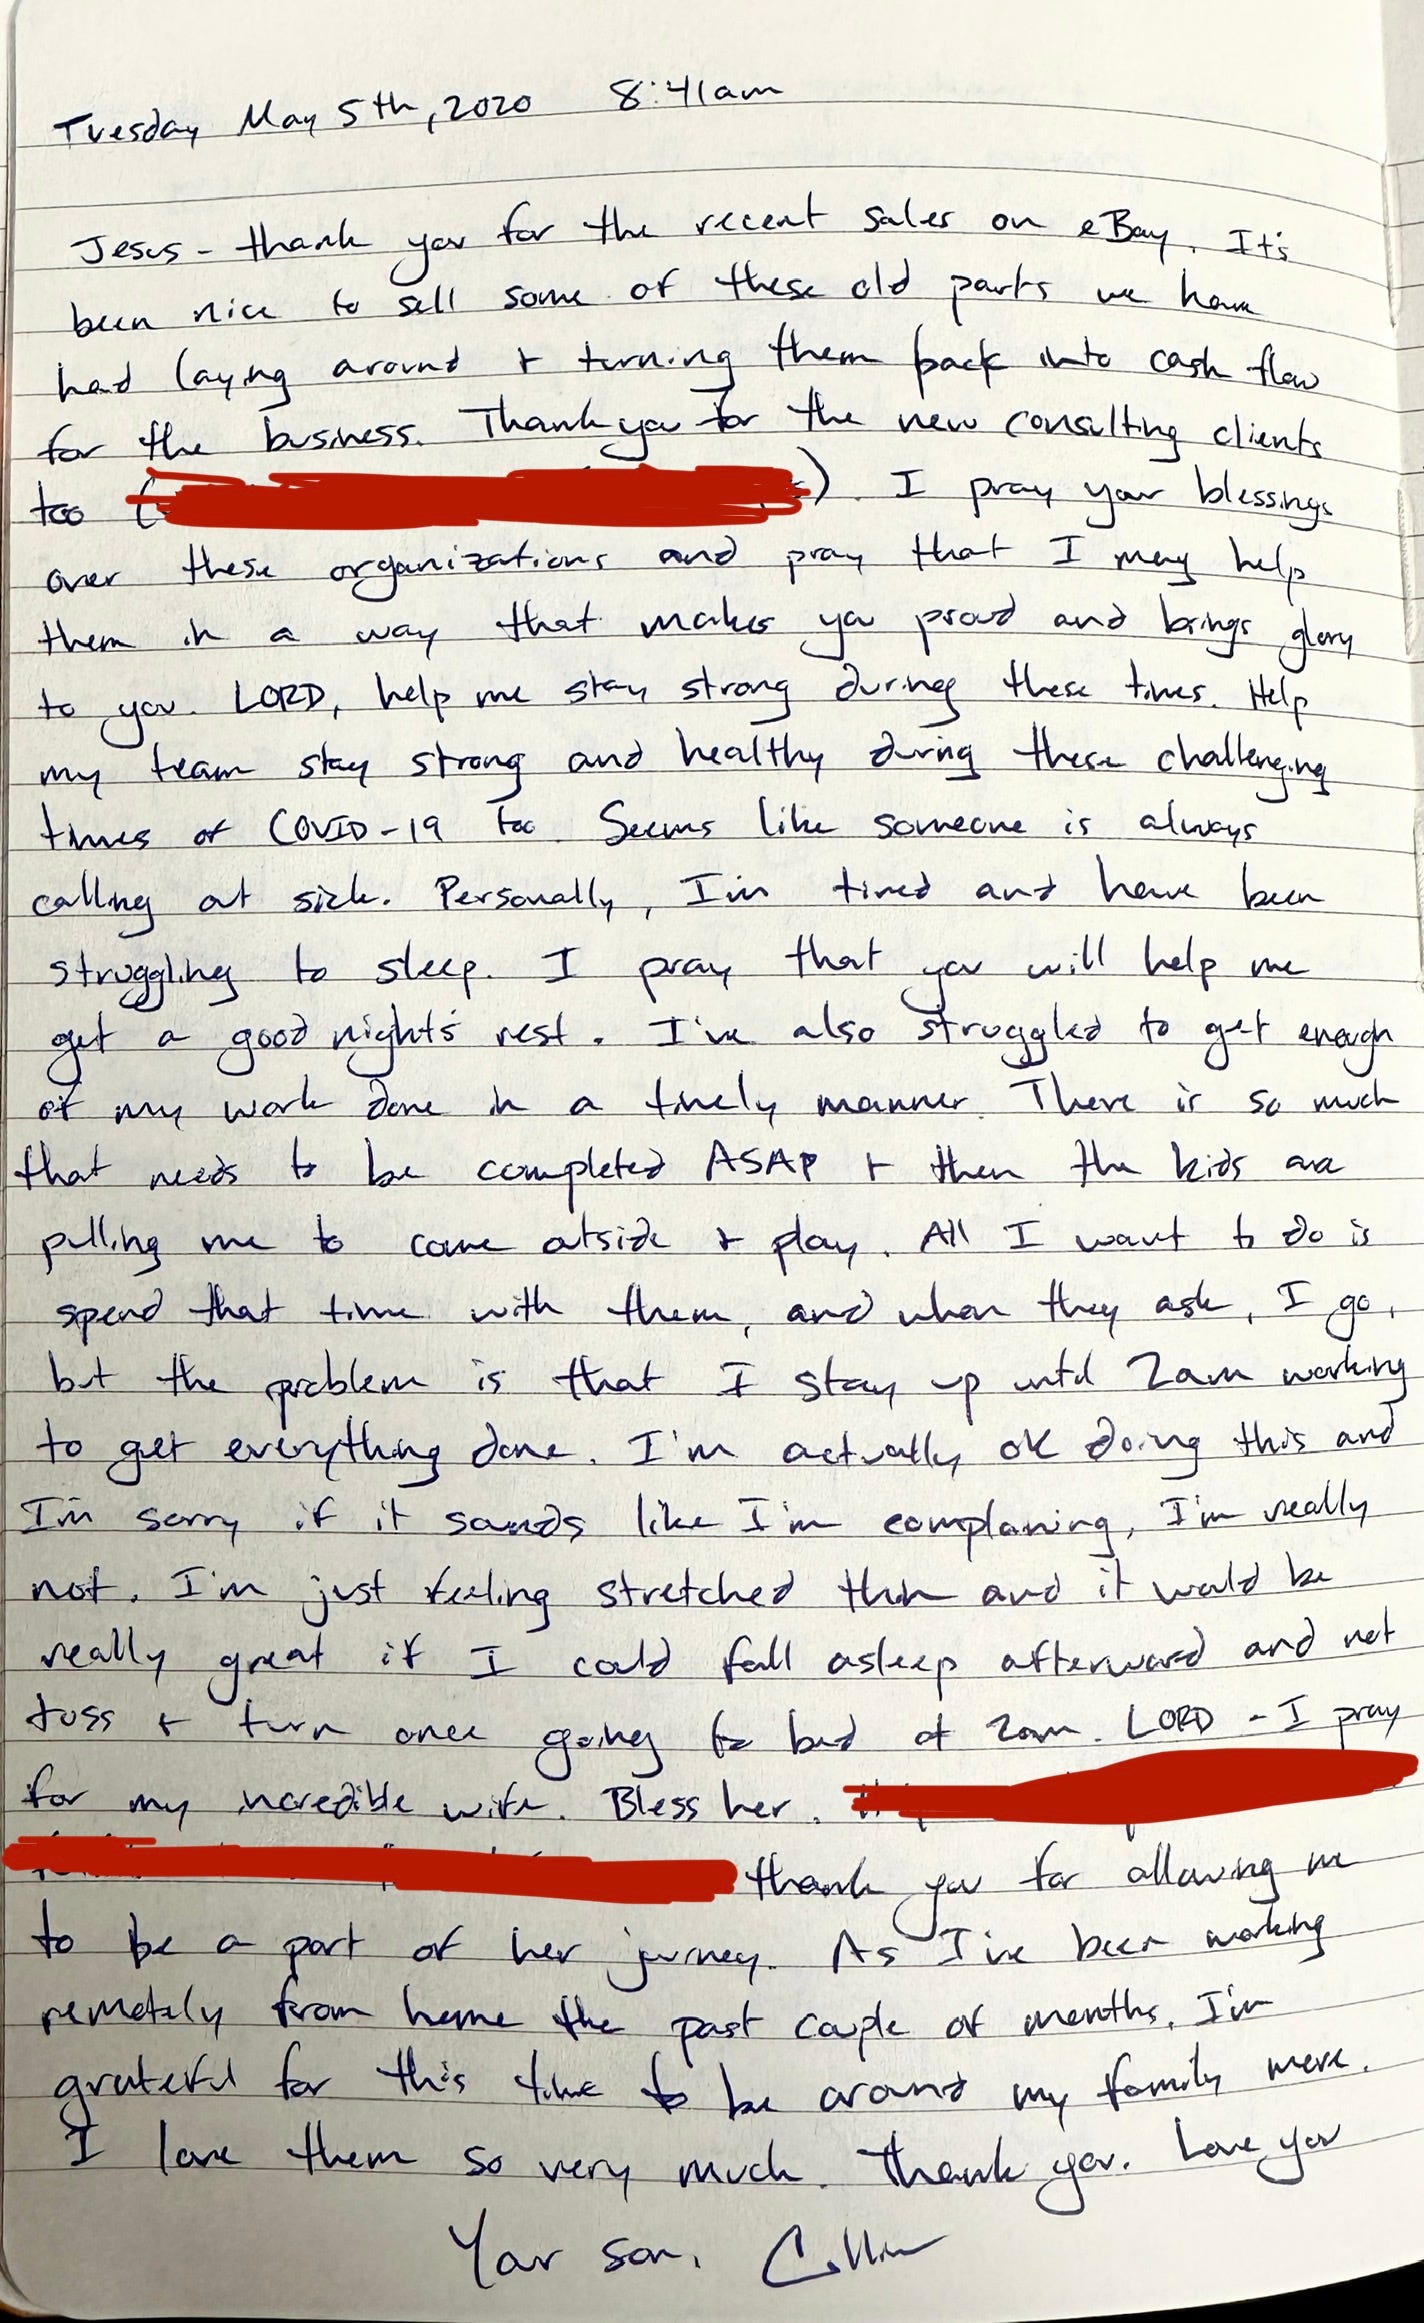 Tuesday May 5th, 2020 8:41am
Jesus - thank you for the recent sales on eBay. It's
been nice to sell some of these old parts we have
had laying around + turning them back into cash flow
for the business. Thank you for the new consulting clients
too ( ). I pray your blessings
over these organizations and pray that I may help
them in a way that makes you proud and brings glory
to you. LORD, help me stay strong during these times. Help
my team stay strong and healthy during these challenging
times of COVID-19 too. Seems like someone is always
calling out sick. Personally, I'm tired and have been
struggling to sleep. I pray that you will help me
get a good night's rest. I've also struggled to get enough
of my work done in a timely manner. There is so much
that needs to be completed ASAP + then the kids are
pulling me to come outside + play. All I want to do is
spend that time with them, and when they ask, I go,
but the problem is that I stay up until 2am working
to get everything done. I'm actually ok doing this and
I'm sorry if it sounds like I'm complaning, I'm really
not. I'm just feeling stretched thin and it would be
really great if I could fall asleep afterward and not
toss + turn once going to bed at 2am. LORD - I pray
for my incredible wife. Bless her.
thank you for allowing me
to be a part of her journey. As I've been working
remotely from home the past couple of months, I'm
grateful for this time to be around my family more.
I love them so very much. Thank you. Love you
Your son, Collin